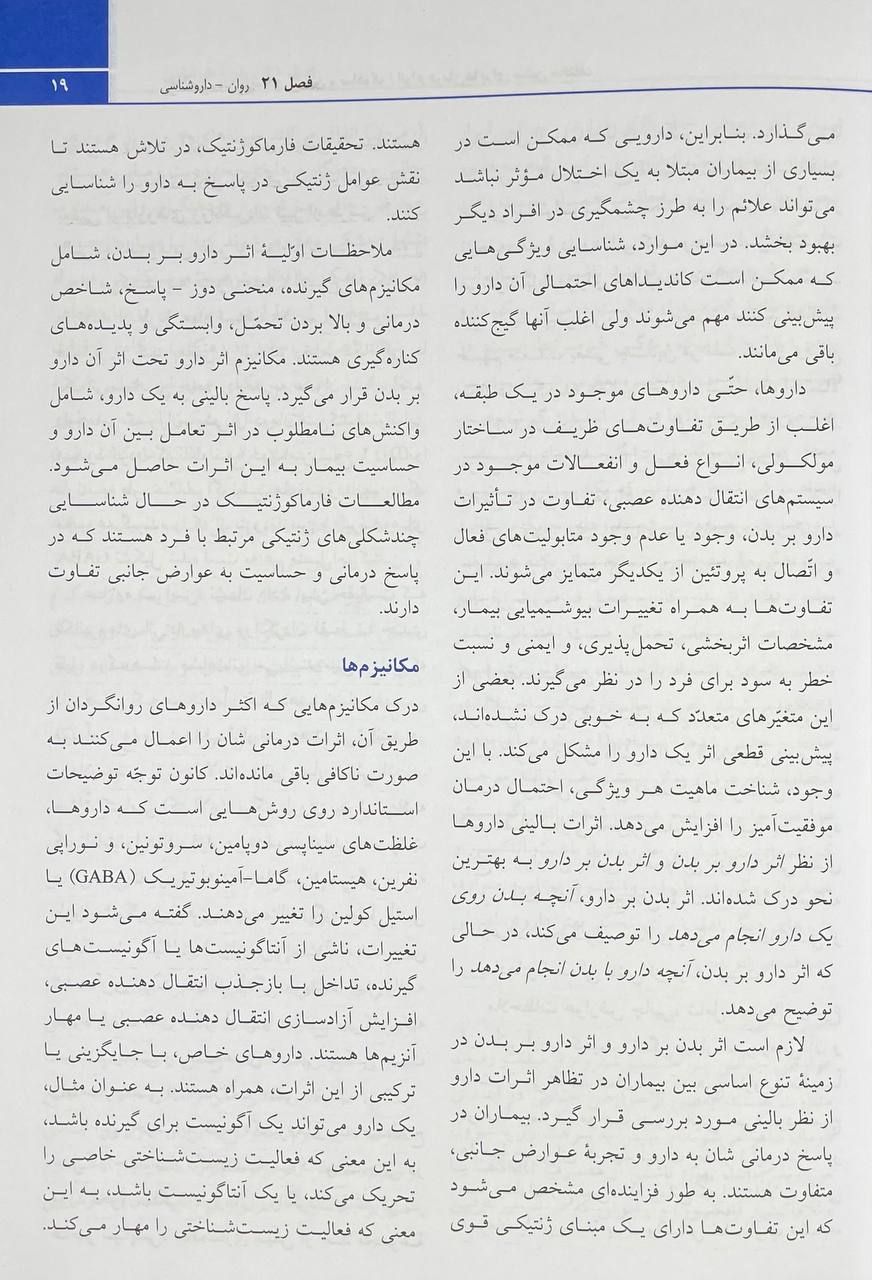 ۱۹
فصل ۲۱ روان - داروشناسی
می‌گذارد. بنابراین، دارویی که ممکن است در
بسیاری از بیماران مبتلا به یک اختلال مؤثر نباشد
می‌تواند علائم را به طرز چشمگیری در افراد دیگر
بهبود بخشد. در این موارد، شناسایی ویژگی‌هایی
که ممکن است کاندیداهای احتمالی آن دارو را
پیش‌بینی کنند مهم می‌شوند ولی اغلب آنها گیج‌کننده
باقی می‌مانند.
داروها، حتّی داروهای موجود در یک طبقه،
اغلب از طریق تفاوت‌های ظریف در ساختار
مولکولی، انواع فعل و انفعالات موجود در
سیستم‌های انتقال دهنده عصبی، تفاوت در تأثیرات
دارو بر بدن، وجود یا عدم وجود متابولیت‌های فعال
و اتّصال به پروتئین از یکدیگر متمایز می‌شوند. این
تفاوت‌ها به همراه تغییرات بیوشیمیایی بیمار،
مشخصات اثربخشی، تحمل‌پذیری، و ایمنی و نسبت
خطر به سود برای فرد را در نظر می‌گیرند. بعضی از
این متغیّرهای متعدّد که به خوبی درک نشده‌اند،
پیش‌بینی قطعی اثر یک دارو را مشکل می‌کند. با این
وجود، شناخت ماهیت هر ویژگی، احتمال درمان
موفقیت‌آمیز را افزایش می‌دهد. اثرات بالینی داروها
از نظر اثر دارو بر بدن و اثر بدن بر دارو به بهترین
نحو درک شده‌اند. اثر بدن بر دارو، آنچه بدن روی
یک دارو انجام می‌دهد را توصیف می‌کند، در حالی
که اثر دارو بر بدن، آنچه دارو با بدن انجام می‌دهد را
توضیح می‌دهد.
لازم است اثر بدن بر دارو و اثر دارو بر بدن در
زمینهٔ تنوع اساسی بین بیماران در تظاهر اثرات دارو
از نظر بالینی مورد بررسی قرار گیرد. بیماران در
پاسخ درمانی شان به دارو و تجربهٔ عوارض جانبی،
متفاوت هستند. به طور فزاینده‌ای مشخص می‌شود
که این تفاوت‌ها دارای یک مبنای ژنتیکی قوی
هستند. تحقیقات فارماکوژنتیک، در تلاش هستند تا
نقش عوامل ژنتیکی در پاسخ به دارو را شناسایی
کنند.
ملاحظات اوّلیهٔ اثر دارو بر بدن، شامل
مکانیزم‌های گیرنده، منحنی دوز - پاسخ، شاخص
درمانی و بالا بردن تحمّل، وابستگی و پدیده‌های
کناره‌گیری هستند. مکانیزم اثر دارو تحت اثر آن دارو
بر بدن قرار می‌گیرد. پاسخ بالینی به یک دارو، شامل
واکنش‌های نامطلوب در اثر تعامل بین آن دارو و
حساسیت بیمار به این اثرات حاصل می‌شود.
مطالعات فارماکوژنتیک در حال شناسایی
چندشکلی‌های ژنتیکی مرتبط با فرد هستند که در
پاسخ درمانی و حساسیت به عوارض جانبی تفاوت
دارند.
مکانیزم‌ها
درک مکانیزم‌هایی که اکثر داروهای روانگردان از
طریق آن، اثرات درمانی شان را اعمال می‌کنند به
صورت ناکافی باقی مانده‌اند. کانون توجّه توضیحات
استاندارد روی روش‌هایی است که داروها،
غلظت‌های سیناپسی دوپامین، سروتونین، و نوراپی
نفرین، هیستامین، گاما-آمینوبوتیریک (GABA) یا
استیل کولین را تغییر می‌دهند. گفته می‌شود این
تغییرات، ناشی از آنتاگونیست‌ها یا آگونیست‌های
گیرنده، تداخل با بازجذب انتقال دهنده عصبی،
افزایش آزادسازی انتقال دهنده عصبی یا مهار
آنزیم‌ها هستند. داروهای خاص، با جایگزینی یا
ترکیبی از این اثرات، همراه هستند. به عنوان مثال،
یک دارو می‌تواند یک آگونیست برای گیرنده باشد،
به این معنی که فعالیت زیست‌شناختی خاصی را
تحریک می‌کند، یا یک آنتاگونیست باشد، به این
معنی که فعالیت زیست‌شناختی را مهار می‌کند.